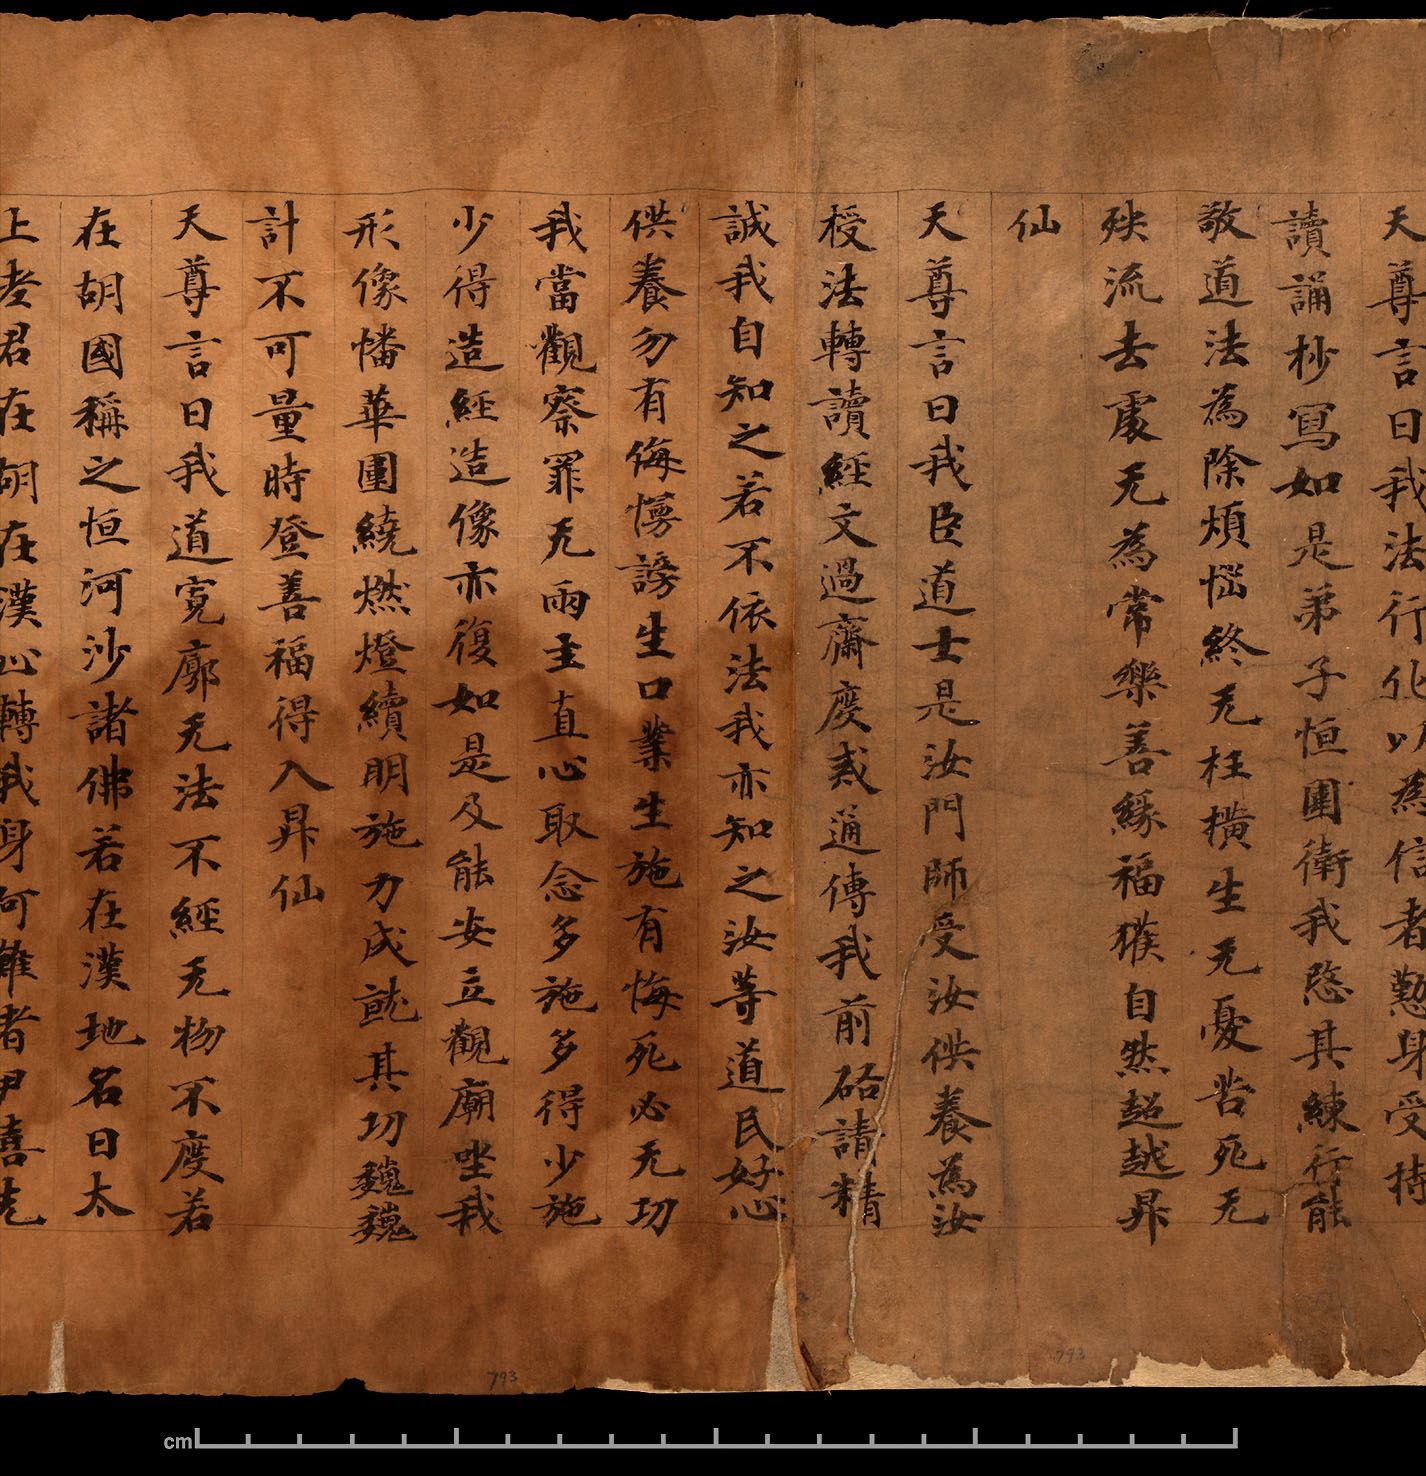 天尊言曰我法行化以為信者懃身受持
讀誦杪寫如是弟子恒圍衛我愍其練行能
敬道法為除煩惱終无枉橫生无憂苦死无
殃流去處无為常樂善緣福獲自然超越昇
仙
天尊言曰我臣道士是汝門師受汝供養為汝
授法轉讀經文過齋度戒通傳我前啓請精
誠我自知之若不依法我亦知之汝等道民好心
供養勿有侮慢謗生口業生施有悔死必无功
我當觀察罪无兩主直心取念多施多得少施
少得造經造像亦復如是及能安立觀廟坐我
形像幡華圍繞燃燈續明施力成就其功巍巍
計不可量時登善福得入昇仙
天尊言曰我道寬廓无法不經无物不度若
在胡國稱之恒河沙諸佛若在漢地名曰太
上老君在胡在漢心轉我身何難者尹喜先
793
793
cm